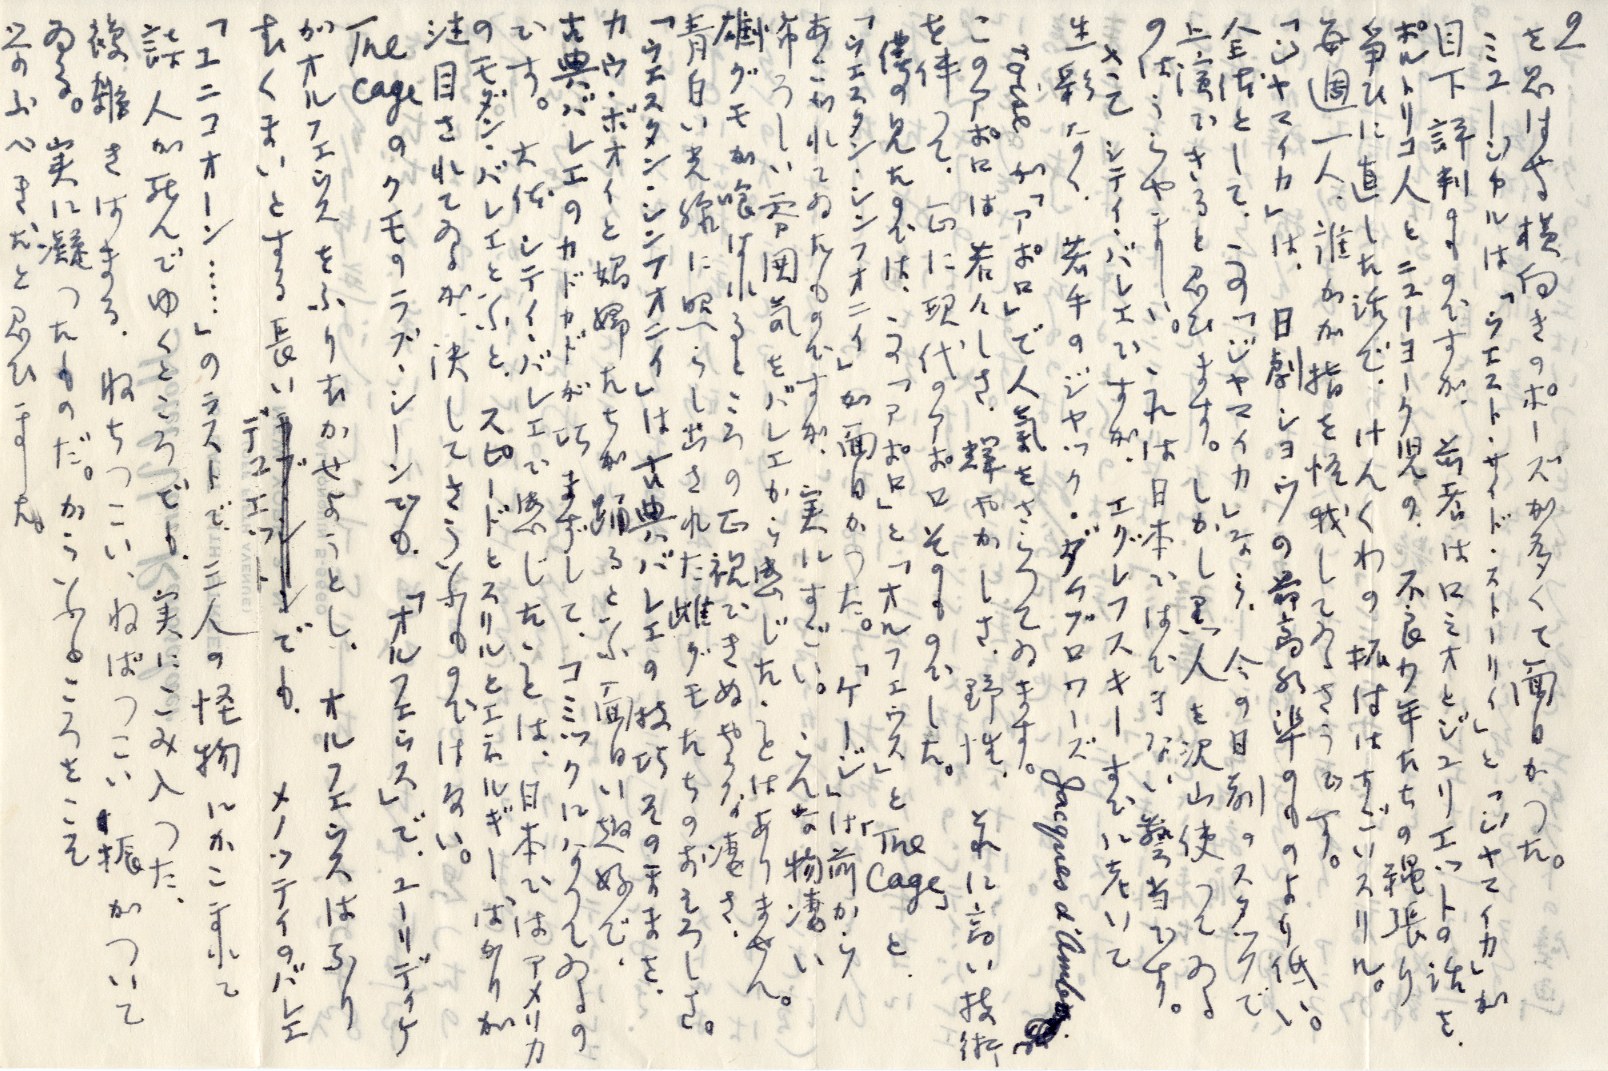 2
を思はせる横向きのポーズが多くて面白かつた。
ミュージカルは「ウエスト・サイド・ストーリイ」と「ジャマイカ」が
目下評判ものですが、前者はロミオとジュリエットの話を、
ポルトリコ人とニューヨーク児の、不良少年たちの縄張り
争ひに直した話で、けんくわの振はすごいスリル。
毎週一人、誰かが指を怪我してゐるさうです。
「ジャマイカ」は、日劇ショウの最高水準のものより低い。
全体として、この「ジャマイカ」なら、今の日劇のスタッフで
上演できると思ひます。しかし黒人を沢山使つてゐる
のはうらやましい。これは日本ではできない藝当です。
さて シティ・バレエですが、エグレフスキーすでに老いて
生彩なく、若手のジャック・ダンブロワーズ Jacques d'Amboise
が「アポロ」で人氣をさらつてゐます。
このアポロは若々しさ、輝やかしさ、野性、それに高い技術
を伴つて、正に現代のアポロそのものでした。
僕の見たのは、この「アポロ」と「オルフェウス」と「The Cage」と、
「ウエスタン・シンフォニイ」が面白かつた。「ケージ」は前から
あこがれてゐたものですが、実にすごい。こんな物凄い
怖ろしい雰囲気をバレエから感じたことはありません。
雄グモが喰はれるところの正視できぬやうな凄さ、
青白い光線に照らし出された雌グモたちのおそろしさ。
「ウエスタン・シンフォニイ」は古典バレエの技巧そのままを、
カウ・ボオイと娼婦たちが踊るといふ面白い趣好で、
古典バレエのカドカドが巧まずして、コミックになつてゐるの
です。大体シティ・バレエで感じたことは、日本ではアメリカ
のモダン・バレエといふと、スピードとスリルとエネルギーばかりが
注目されてゐるが、決してさういふものではない。
The Cageのクモのラブ・シーンでも、「オルフェウス」で、ユーリディケ
がオルフェウスをふりむかせようとし、オルフェウスはふり
むくまいとする長いデュエットでも、メノッティのバレエ
「ユニコオーン……」のラストで、三人の怪物にかこまれて
詩人が死んでゆくところでも、実にこみ入つた、
複雑きはまる、ねちつこい、ねばつこい振がついて
ゐる。実に凝つたものだ。かういふところをこそ
学ぶべきだと思ひました。